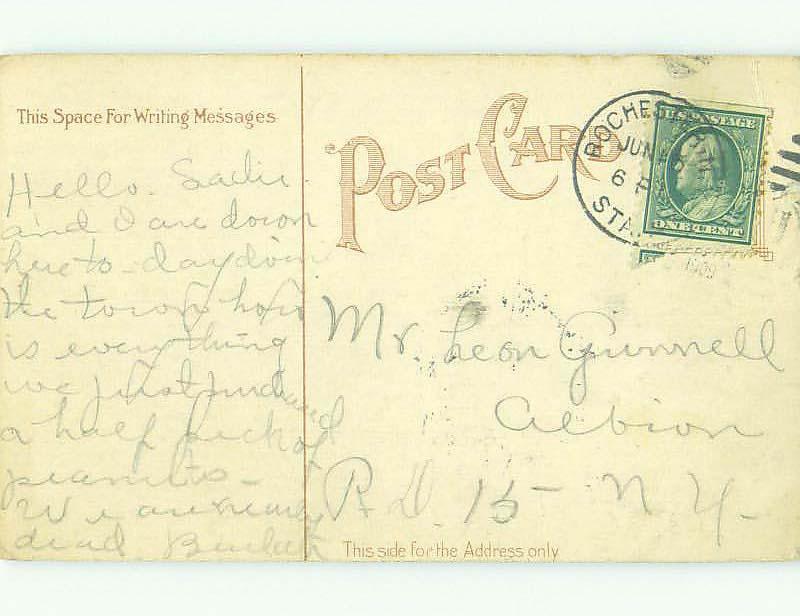 This Space For Writing Messages
POST CARD
ROCHESTER
JUN
6 P
STA.
1909
U.S. POSTAGE
ONE CENT
Hello. Sadie
and I are down
here to-day doin
the town how
is everything
we just
a half peck of
peanuts-
We are nearly
dead Beulah
Mr. Leon Gunnell
Albion
R.D. 15- N.Y.
This side for the Address only